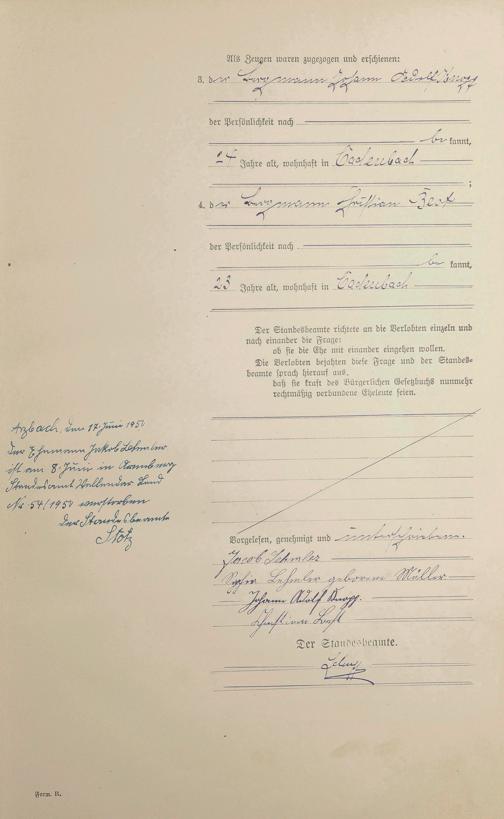 Als Zeugen waren zugezogen und erschienen:
3. der Bergmann Johann Adolf Knopp
der Persönlichkeit nach
be kannt,
24 Jahre alt, wohnhaft in Cadenbach
;
4. der Bergmann Christian Best
der Persönlichkeit nach
be kannt,
23 Jahre alt, wohnhaft in Cadenbach
Der Standesbeamte richtete an die Verlobten einzeln und
nach einander die Frage:
ob sie die Ehe mit einander eingehen wollen.
Die Verlobten bejahten diese Frage und der Standes-
beamte sprach hierauf aus,
daß sie kraft des Bürgerlichen Gesetzbuchs nunmehr
rechtmäßig verbundene Eheleute seien.
Arzbach, den 17. Juni 1950
Der Ehemann Jakob Lehmler
ist am 8. Juni in
Standesamt Vallendar Land
Nr. 54/1950 verstorben
Der Standesbeamte
Stotz
Vorgelesen, genehmigt und unterschrieben.
Jacob Lehmler
Lehmler geborene Müller
Johann Adolf Knopp.
Christian Best
Der Standesbeamte.
Form. B.